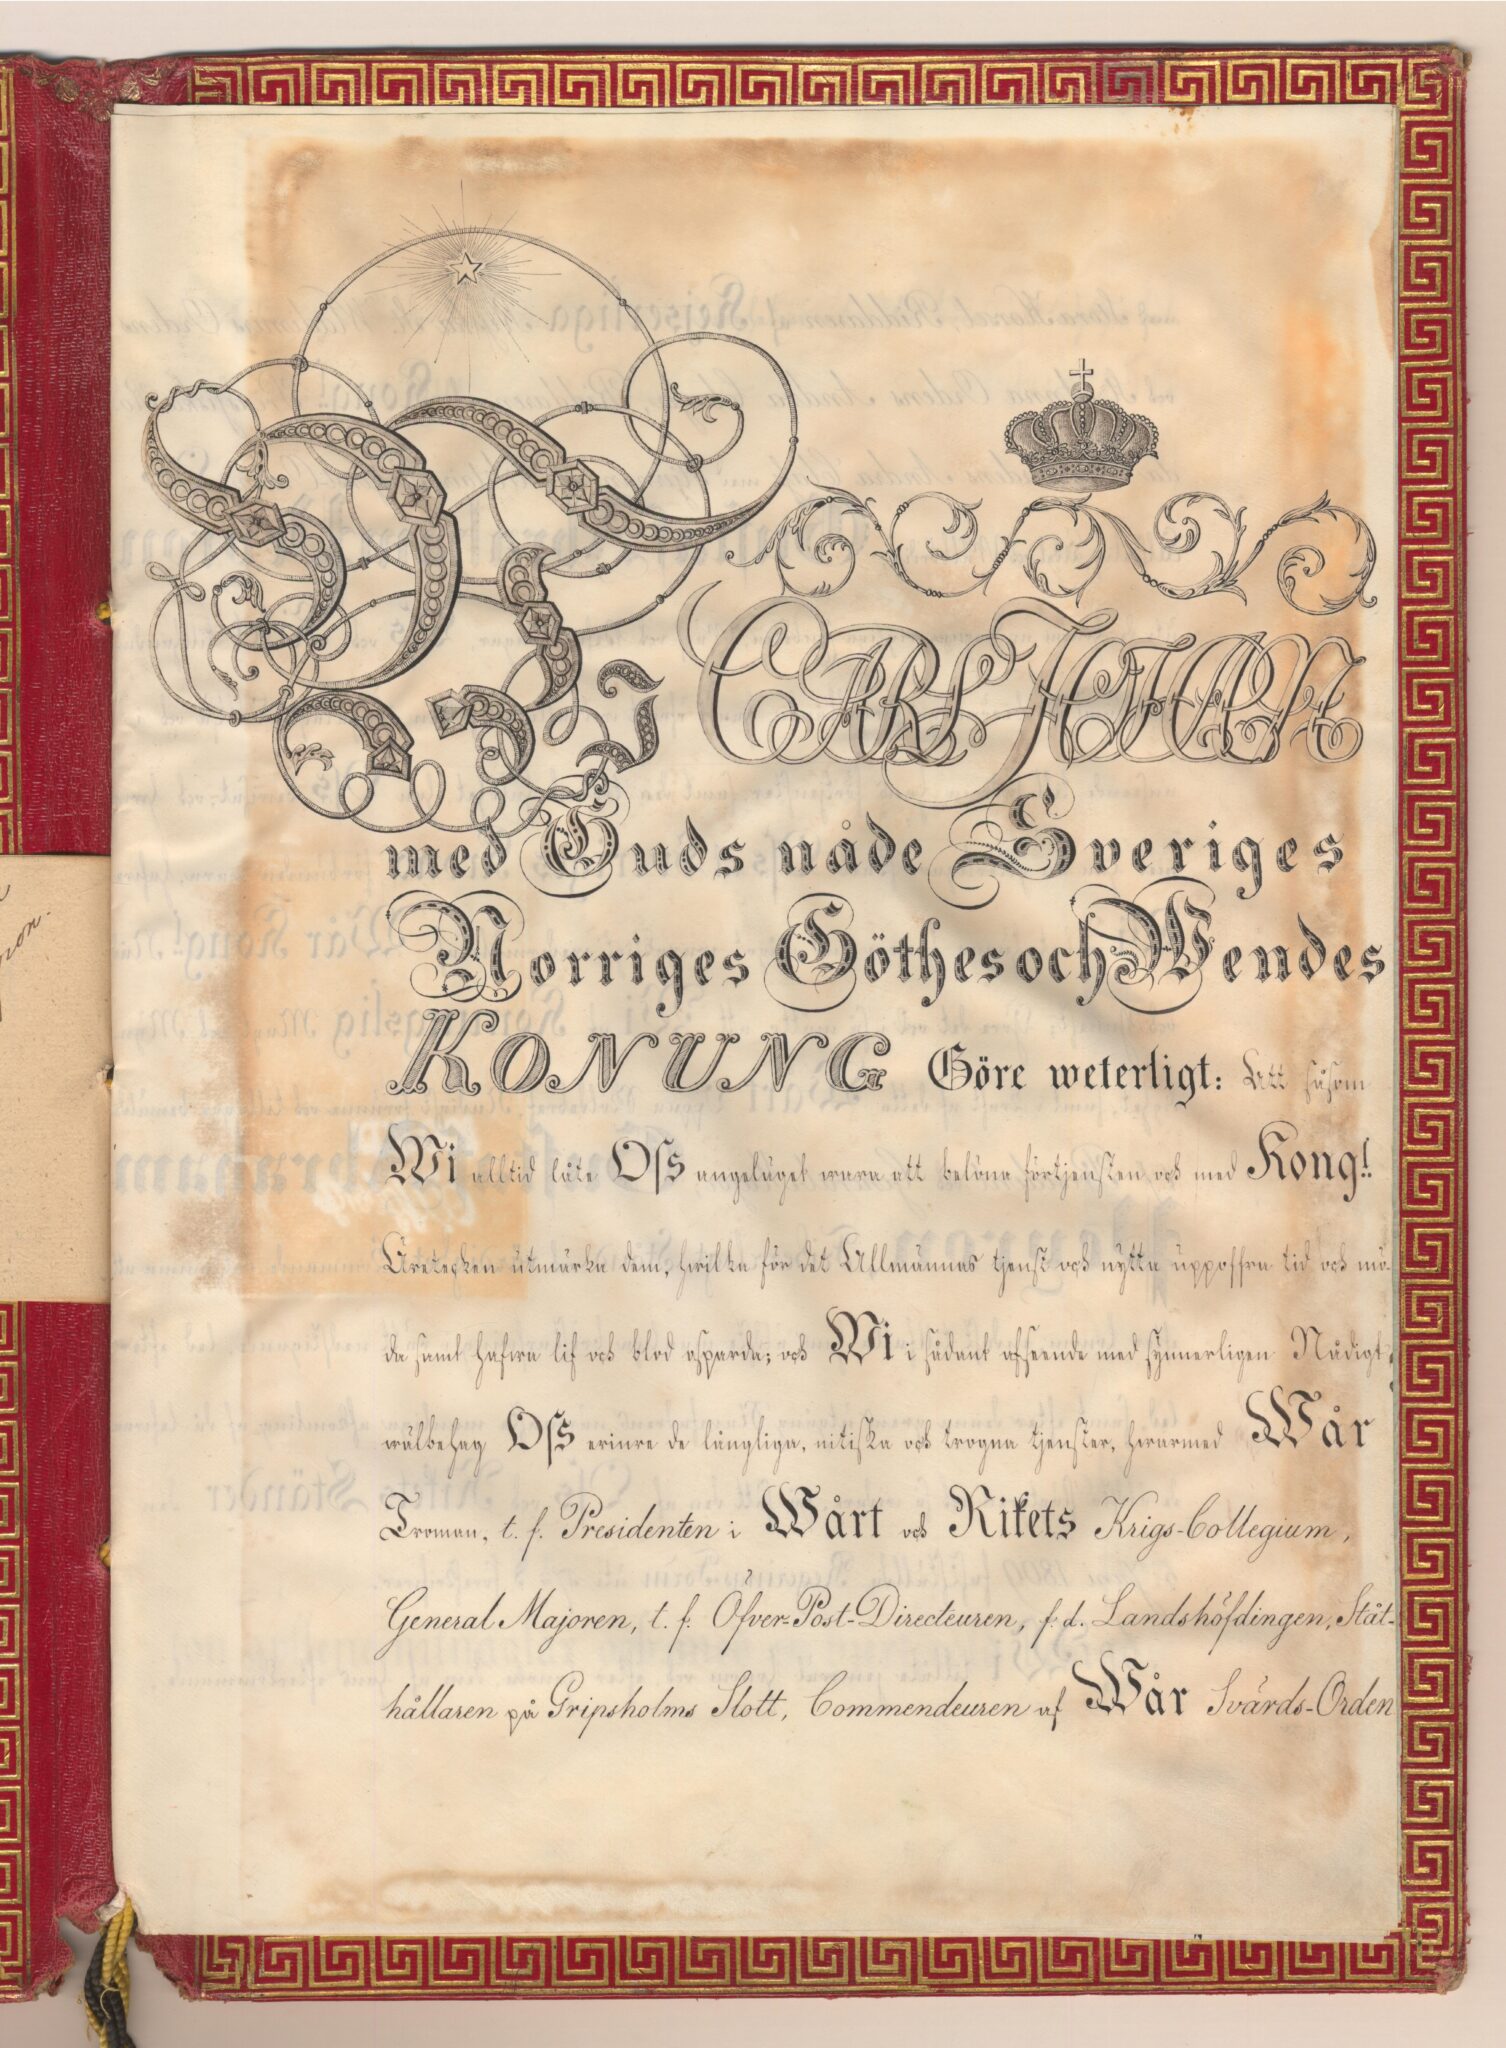 Wi CARL JOHAN
med Guds nåde Sveriges
Norriges Göthes och Wendes
KONUNG Göre weterligt: Att såsom
Wi alltid låte Oss angeläget wara att belöna förtjensten och med Kongl.
Äretecken utmärka dem, hwilka för det Allmännas tjenst och nytta uppoffra tid och mö-
da samt hafwa lif och blod osparda; och Wi i sådant afseende med synnerligen Nådigt
wälbehag Oss erinre de långliga, nitiska och trogna tjenster, hwarmed Wår
Troman, t. f. Presidenten i Wårt och Rikets Krigs-Collegium,
General Majoren, t. f. Öfver-Post-Directeuren, f. d. Landshöfdingen, Ståt-
hållaren på Gripsholms Slott, Commendeuren af Wår Svärds-Orden